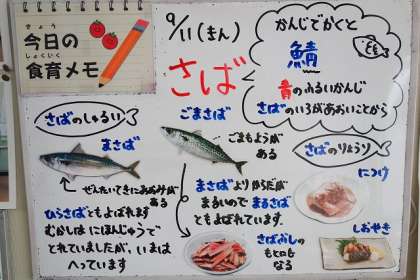 きょう
今日の
しょくいく
食育メモ
9/11(きん)
さば
かんじでかくと
鯖
青のみえるいかんじ
さばのいろがあおいことから
さばのしゅるい
まさば
ぜんたいてきにあおみが
ある
ひらさばともよばれます
むかしは にほんじゅうで
とれていましたが、いまは
へっています
ごまさば
ごまもようが
ある
まさばよりからだが
まるいので まるさば
ともよばれています。
さばぶしの
もとにも
なる
さばのりょうり
につけ
しおやき